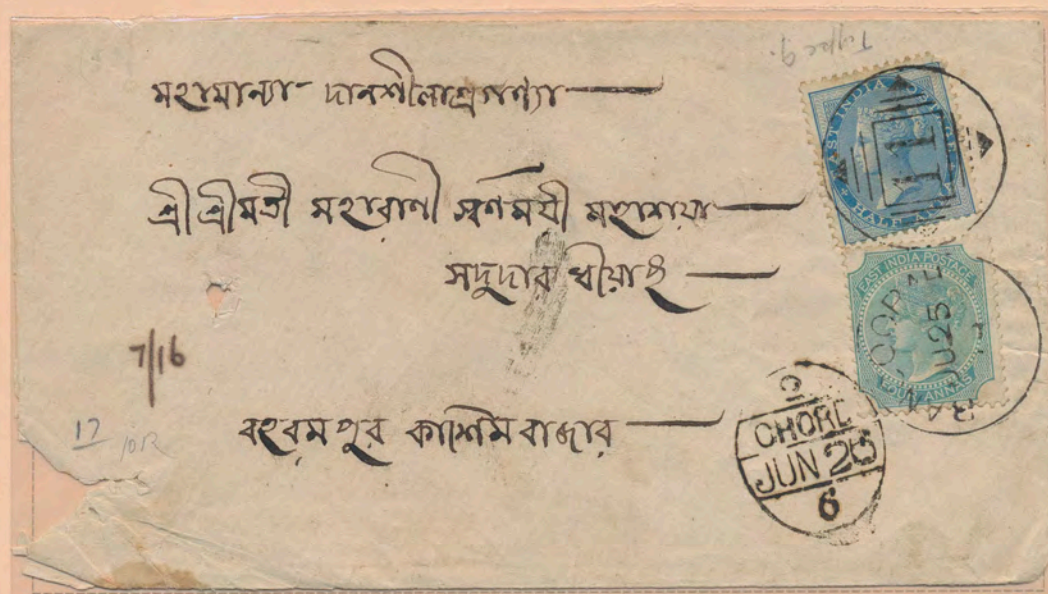 Type 9.
মহামান্যা দানশীলাগ্রগণ্যা —
শ্রীশ্রীমতী মহারাণী স্বর্ণময়ী মহাশয়া —
বহরমপুর কাশিমবাজার —
7/16
17
EAST INDIA POSTAGE
HALF
11
EAST INDIA POSTAGE
FOUR ANNAS
JU 25
CHORE
JUN 26
6